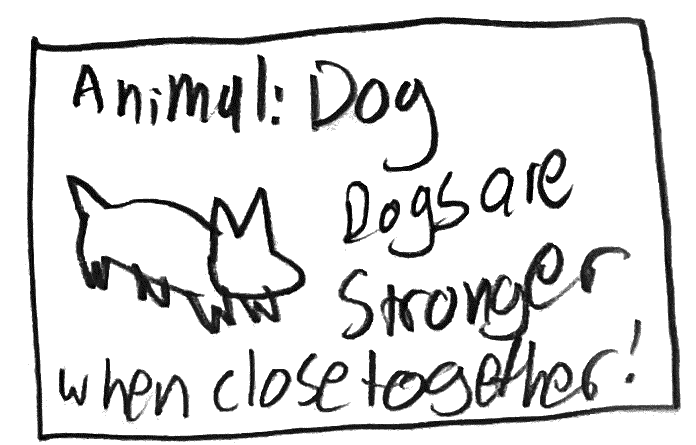 Animal: Dog
Dogs are
Stronger
when close together!